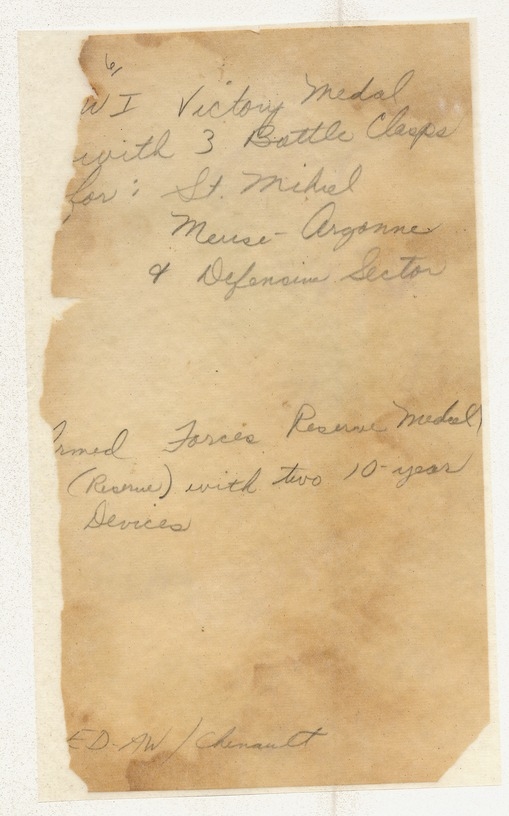 W I Victory Medal
with 3 Battle Clasps
for: St. Mihiel
Meuse-Argonne
& Defensive Sector
Armed Forces Reserve Medal
(Reserve) with two 10-year
Devices
ED-AW / Chenault